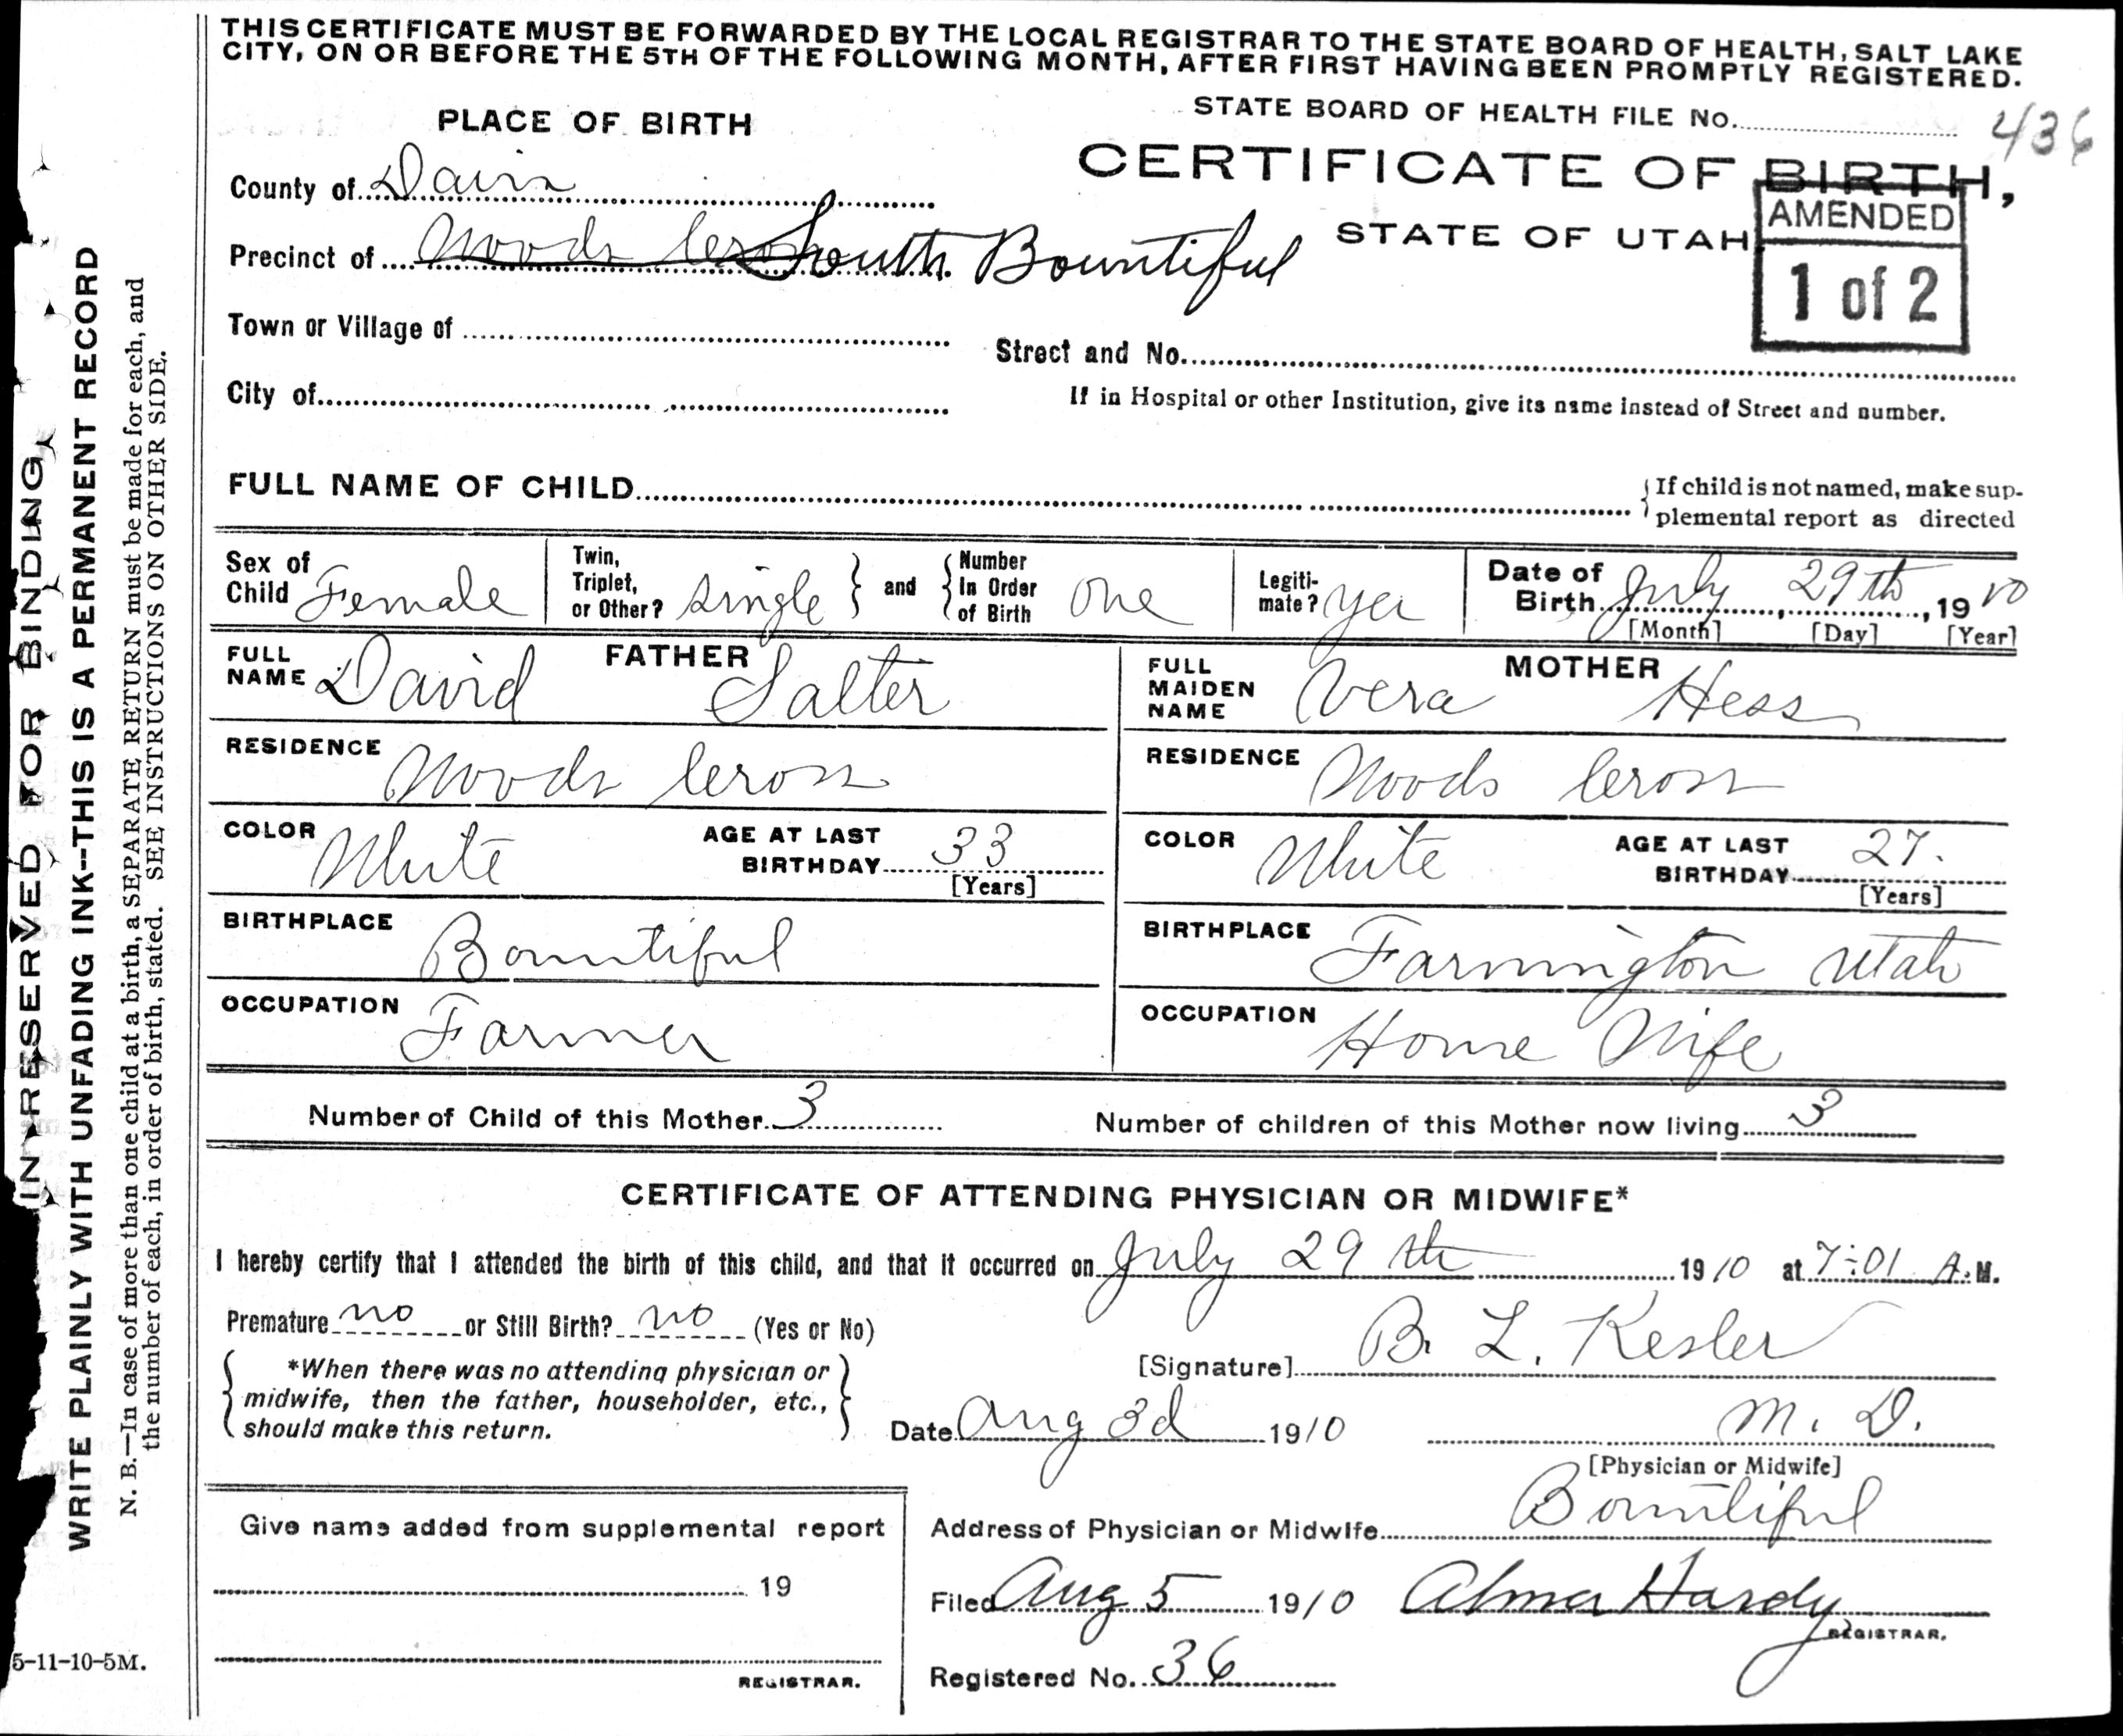 THIS CERTIFICATE MUST BE FORWARDED BY THE LOCAL REGISTRAR TO THE STATE BOARD OF HEALTH, SALT LAKE
CITY, ON OR BEFORE THE 5TH OF THE FOLLOWING MONTH, AFTER FIRST HAVING BEEN PROMPTLY REGISTERED.
PLACE OF BIRTH
STATE BOARD OF HEALTH FILE No. 436
CERTIFICATE OF BIRTH,
STATE OF UTAH
AMENDED
1 of 2
County of Davis
Precinct of Woods Cross South Bountiful
Town or Village of
Street and No.
City of
If in Hospital or other Institution, give its name instead of Street and number.
FULL NAME OF CHILD
{If child is not named, make sup-
plemental report as directed
Sex of Child Female
Twin, Triplet, or Other? single } and { Number In Order of Birth one
Legiti-mate? yes
Date of Birth July, 29th, 1910
[Month] [Day] [Year]
FATHER
FULL NAME David Salter
MOTHER
FULL MAIDEN NAME Vera Hess
RESIDENCE Woods Cross
RESIDENCE Woods Cross
COLOR White AGE AT LAST BIRTHDAY 33 [Years]
COLOR White AGE AT LAST BIRTHDAY 27. [Years]
BIRTHPLACE Bountiful
BIRTHPLACE Farmington Utah
OCCUPATION Farmer
OCCUPATION House Wife
Number of Child of this Mother 3
Number of children of this Mother now living 3
CERTIFICATE OF ATTENDING PHYSICIAN OR MIDWIFE*
I hereby certify that I attended the birth of this child, and that it occurred on July 29th 1910 at 7:01 A.M.
Premature no or Still Birth? no (Yes or No)
{ *When there was no attending physician or
midwife, then the father, householder, etc.,
should make this return. }
[Signature] B. L. Kesler
Date Aug 3d 1910
M. D.
[Physician or Midwife]
Give name added from supplemental report
19
REGISTRAR.
Address of Physician or Midwife Bountiful
Filed Aug 5 1910 Alma Hardy
REGISTRAR.
Registered No. 36
IN RESERVED FOR BINDING
WRITE PLAINLY WITH UNFADING INK--THIS IS A PERMANENT RECORD
N. B.—In case of more than one child at a birth, a SEPARATE RETURN must be made for each, and
the number of each, in order of birth, stated. SEE INSTRUCTIONS ON OTHER SIDE.
5-11-10-5M.